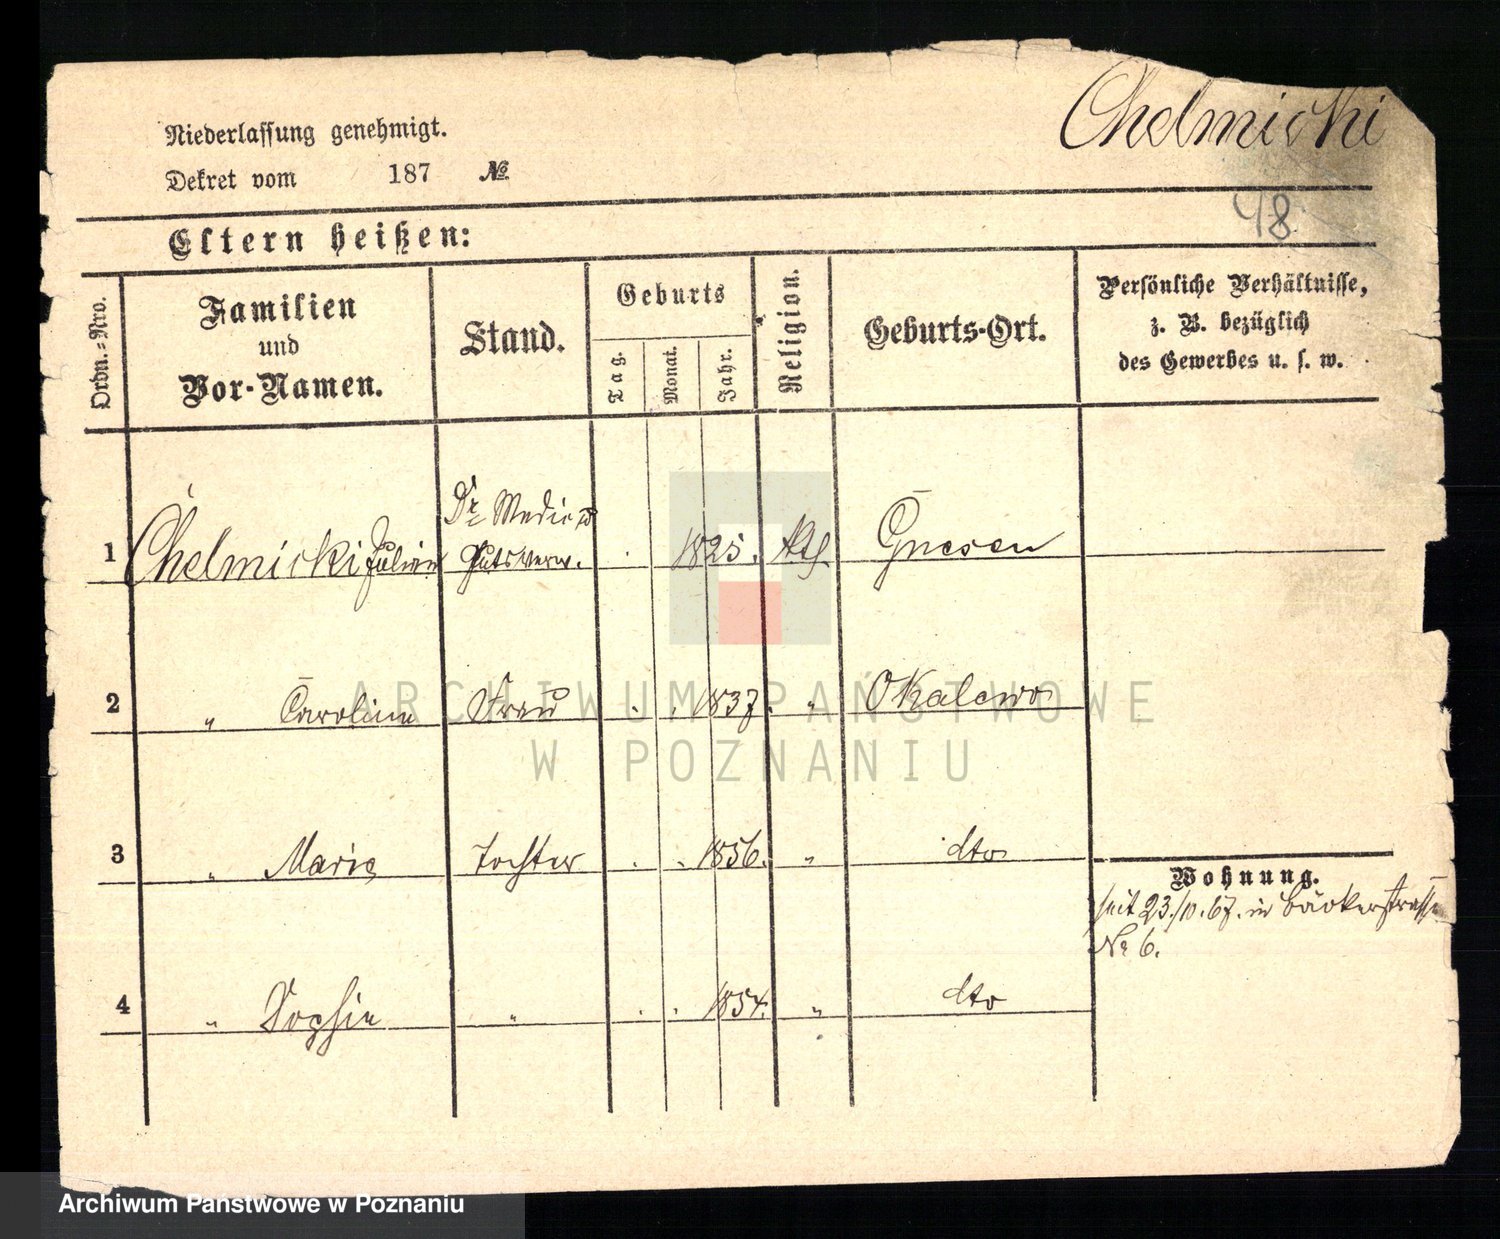 Chelmicki
Niederlassung genehmigt.
Dekret vom 187 №
48
Eltern heißen:
Ordn.-Nro.
Familien
und
Vor-Namen.
Stand.
Geburts
Tag.
Monat.
Jahr.
Religion.
Geburts-Ort.
Persönliche Verhältnisse,
z. B. bezüglich
des Gewerbes u. s. w.
Dr Medic u
1 Chelmicki Julian Gutsverw. 1825. kth. Gnesen
2 " Caroline Frau 1837. " Okalewo
3 " Marie Tochter 1856. " dto
Wohnung.
seit 23./10. 67. in Bäckerstrasse
Nr 6.
4 " Sophie " 1854. " dto
ARCHIWUM PAŃSTWOWE
W POZNANIU
Archiwum Państwowe w Poznaniu